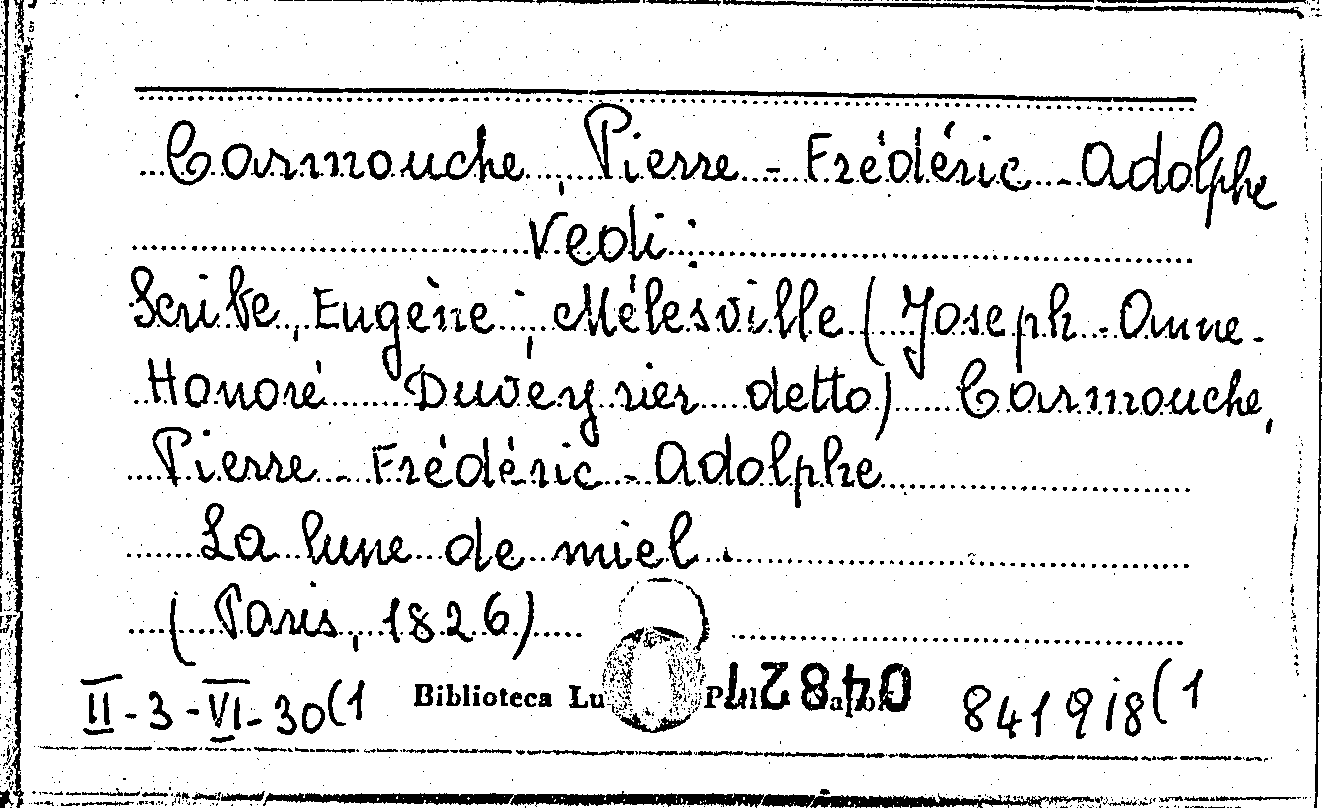 Carmouche, Pierre-Frédéric-Adolphe
Vedi:
Scribe, Eugène; Mélesville (Joseph-Anne-
Honoré Duveyrier detto) Carmouche,
Pierre-Frédéric-Adolphe
La lune de miel.
(Paris, 1826)
II-3-VI-30(1 Biblioteca 841918(1